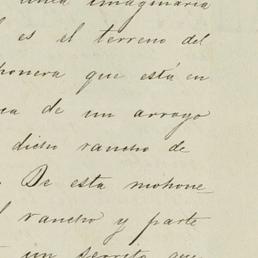 línea imaginaria
l es el terreno del
honera que está en
ca de un arroyo
dicho rancho de
De esta mohone=
l rancho y parte
un secreto que